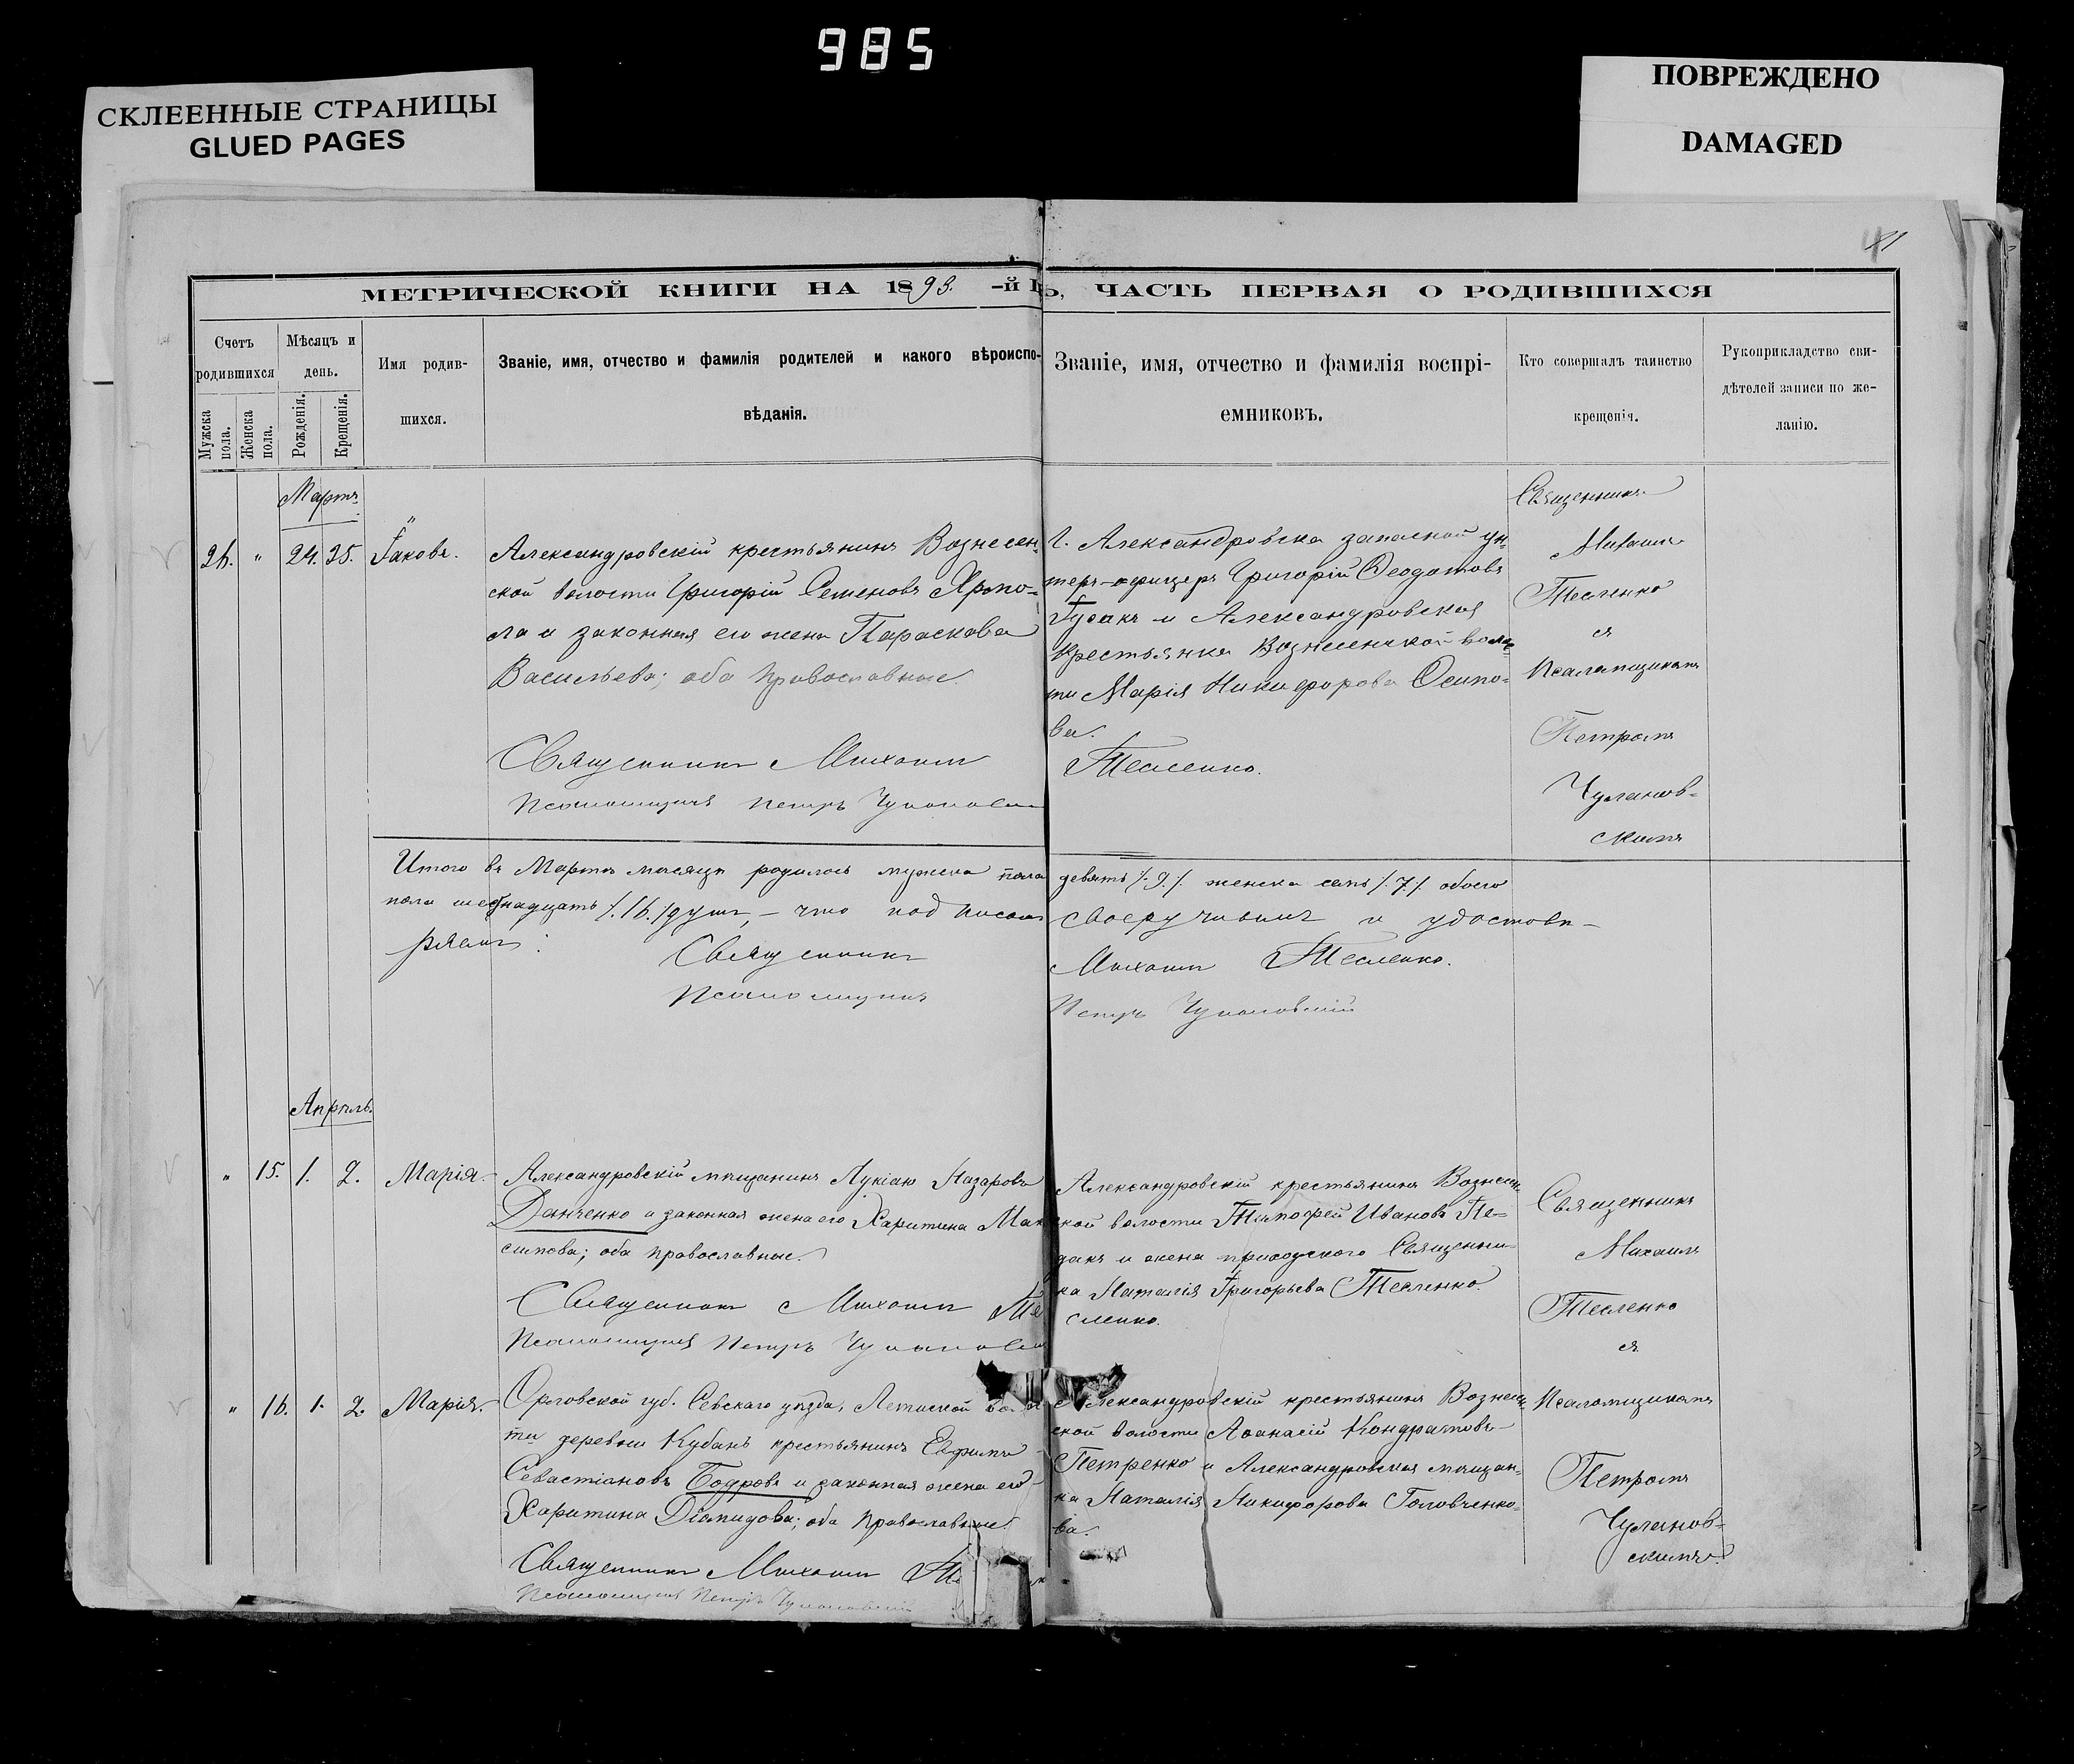 985
СКЛЕЕННЫЕ СТРАНИЦЫ
GLUED PAGES
ПОВРЕЖДЕНО
DAMAGED
41
МЕТРИЧЕСКОЙ КНИГИ НА 1893.-й Г
Ъ, ЧАСТЬ ПЕРВАЯ О РОДИВШИХСЯ
Счетъ
родившихся
Мужска
пола.
Женска
пола.
Мѣсяцъ и
день.
Рожденія.
Крещенія.
Имя родив-
шихся.
Званіе, имя, отчество и фамилія родителей и какого вѣроиспо-
вѣданія.
Званіе, имя, отчество и фамилія воспрі-
емниковъ.
Кто совершалъ таинство
крещенія.
Рукоприкладство сви-
дѣтелей записи по же-
ланію.
Мартъ.
26. " 24. 25. Іаковъ.
Александровскій крестьянинъ Вознесен-
ской волости Григорій Семеновъ Ярмо-
ла и законная его жена Параскева
Васильева; оба православные.
Священникъ Михаилъ
Псаломщикъ Петръ Чулановскій
Г. Александровска запасной ун-
теръ-офицеръ Григорій Ѳеодотовъ
Гусакъ и Александровская
крестьянка Вознесенской волос-
ти Марія Никифорова Осипо-
ва.
Тесленко.
Священникъ
Михаилъ
Тесленко
съ
Псаломщикомъ
Петромъ
Чуланов-
скимъ
Итого въ Мартѣ мѣсяцѣ родилось мужска пола
пола шестнадцать /.16./ душъ, – что подписомъ
ряемъ:
Священникъ
Псаломщикъ
девять /.9./. женска семь /.7./. обоего
своеручнымъ и удостовѣ-
Михаилъ Тесленко.
Петръ Чулановскій
Апрѣль.
" 15. 1. 2. Марія.
Александровскій мѣщанинъ Лукіанъ Назаровъ
Данченко и законная жена его Харитина Мак
симова; оба православные.
Священникъ Михаилъ Те
Псаломщикъ Петръ Чулановскій
Александровскій крестьянинъ Вознесен-
ской волости Тимофей Ивановъ Пе-
дакъ и жена приходскаго Священни-
ка Наталія Григорьева Тесленко.
сленко.
Священникъ
Михаилъ
Тесленко
съ
" 16. 1. 2. Марія.
Орловской губ. Севскаго уѣзда,
ти деревни Кубань крестьянинъ Евфимъ
Севастіановъ Бодровъ и законная жена его
Харитина Діомидова; оба православные.
Священникъ Михаилъ Те
Псаломщикъ Петръ Чулановскій
Александровскій крестьянинъ Вознесен-
ской волости Аѳанасій Кондратовъ
Петренко и Александровская мѣщан-
ка Наталія Никифорова Головченко-
ва.
Псаломщикомъ
Петромъ
Чуланов-
скимъ.